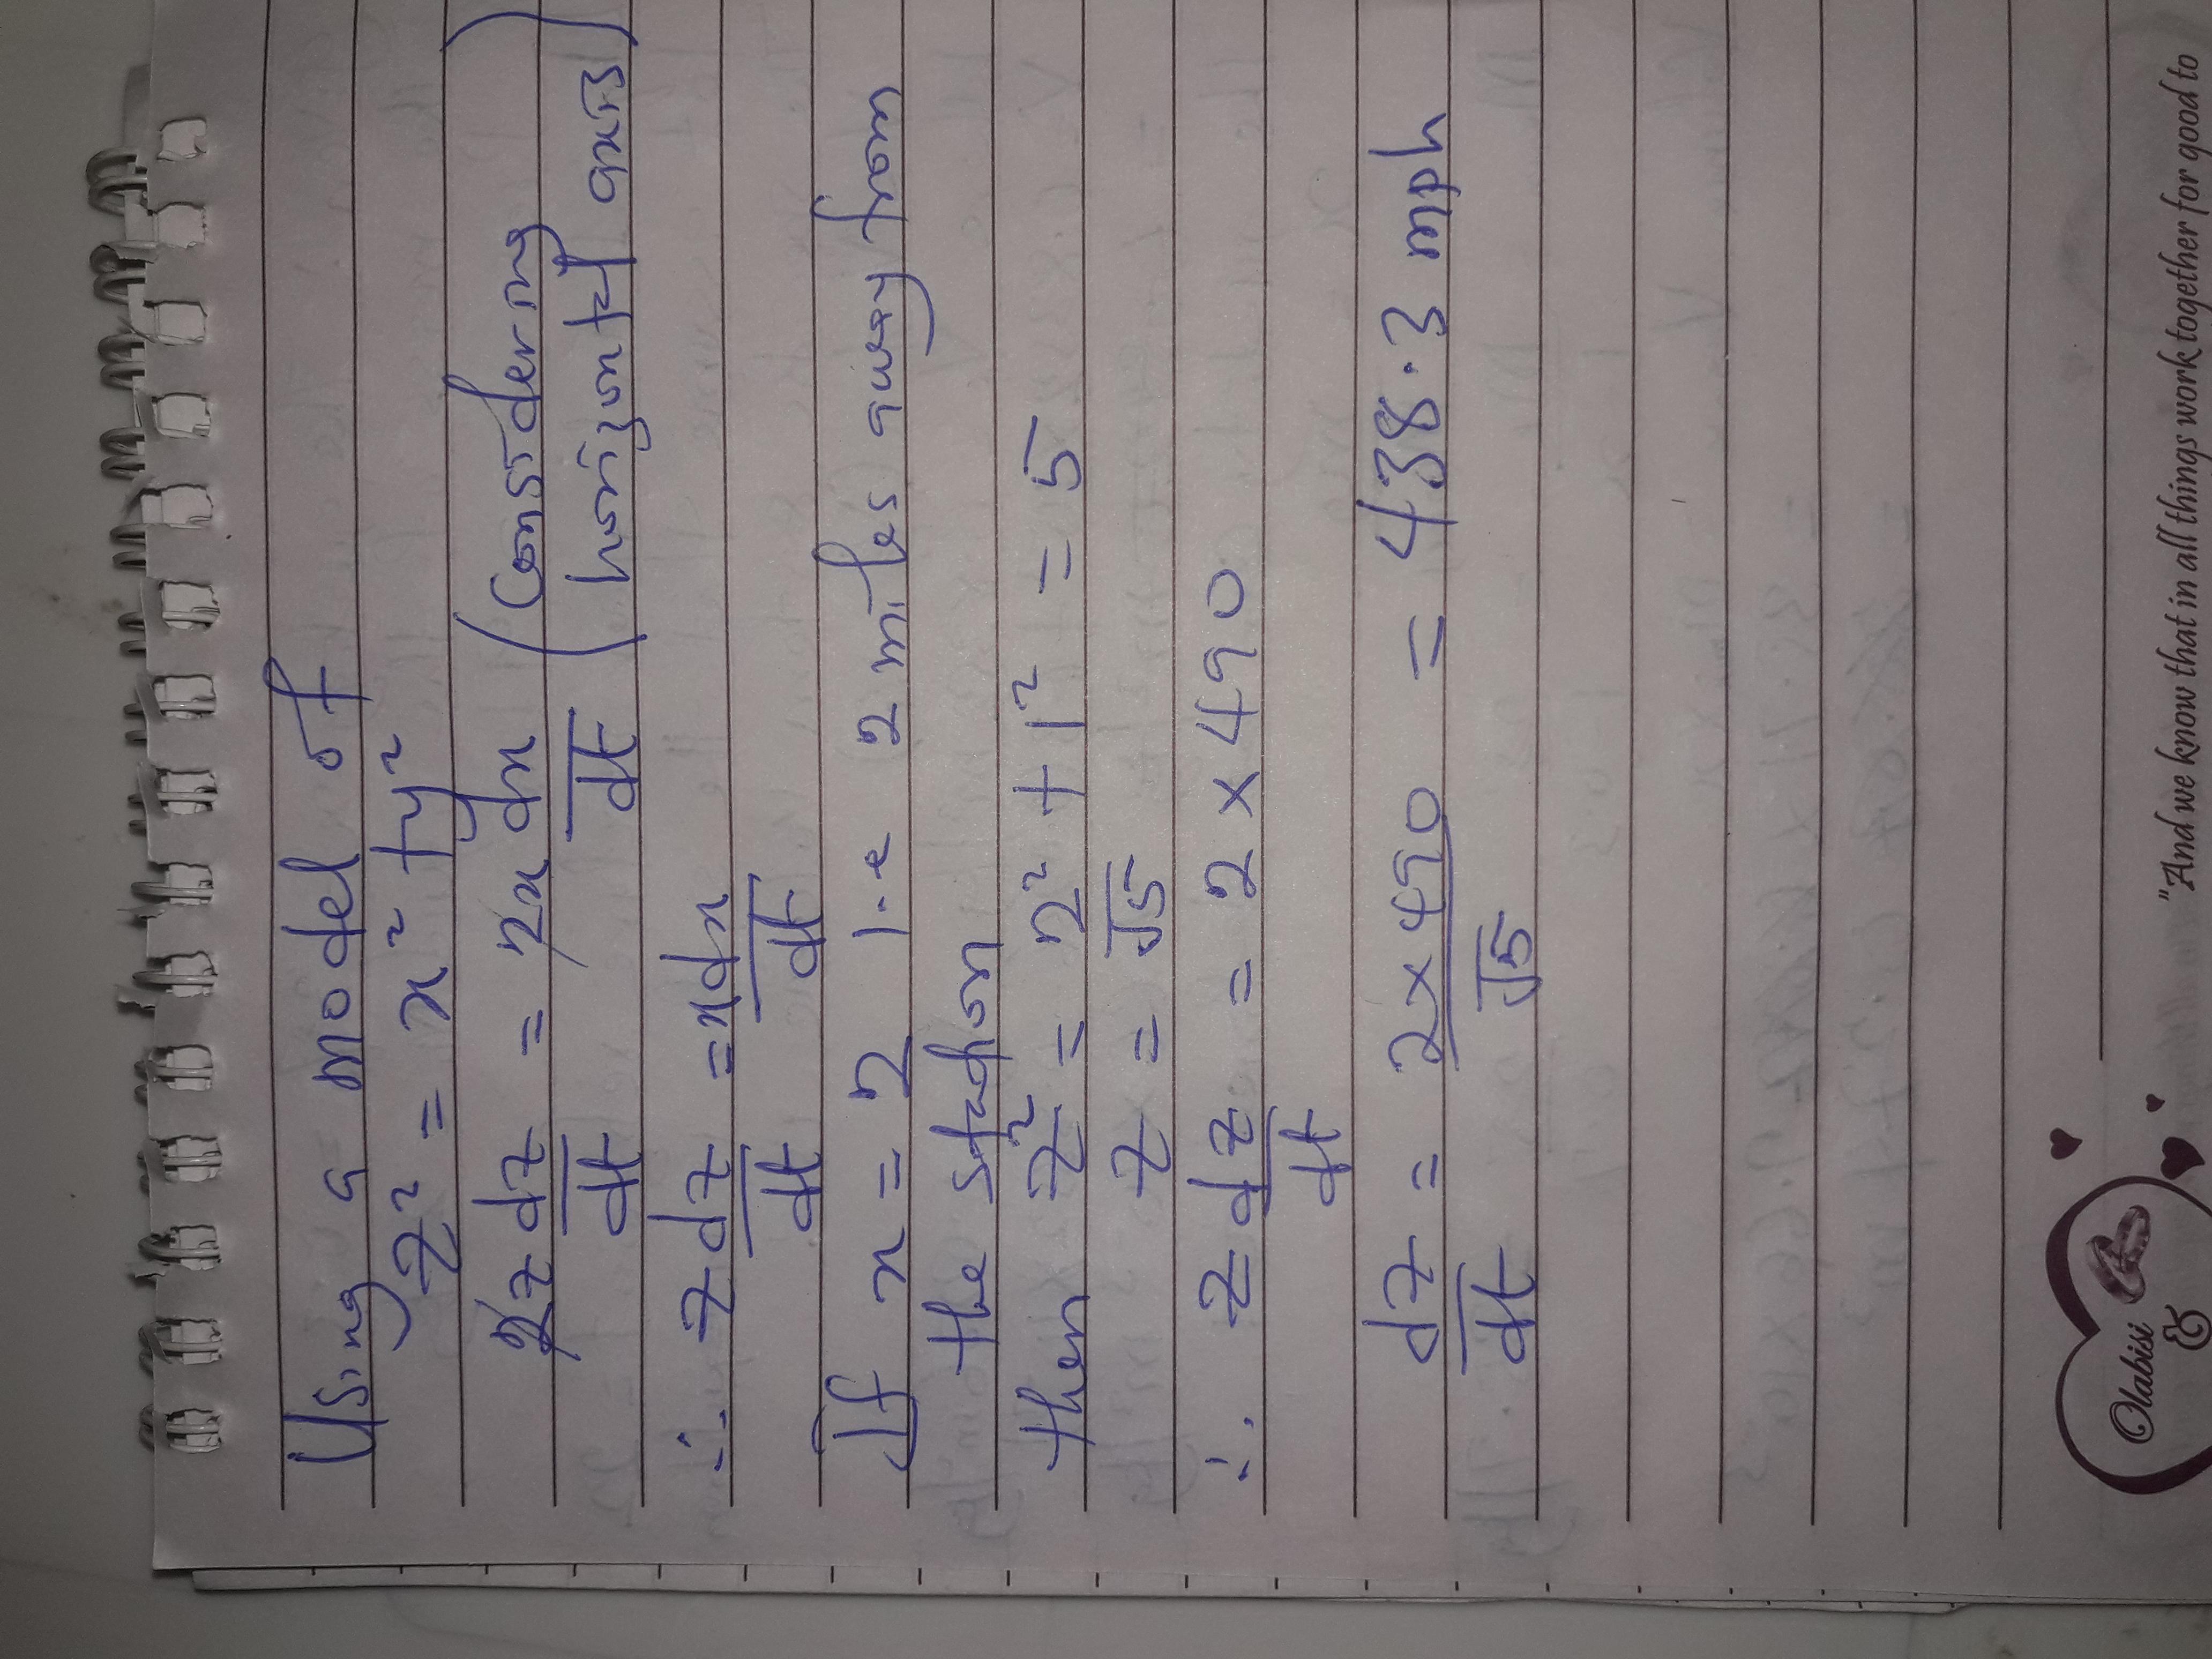 Using a model of
z² = x² + y²
2z dz/dt = 2x dx/dt (Considering horizontal axis)
∴ z dz/dt = x dx/dt
If x = 2 i.e 2 miles away from
the station
then z² = 2² + 1² = 5
z = √5
∴ z dz/dt = 2 × 490
dz/dt = 2×490/√5 = 438.3 mph
"And we know that in all things work together for good to
Olabisi
&